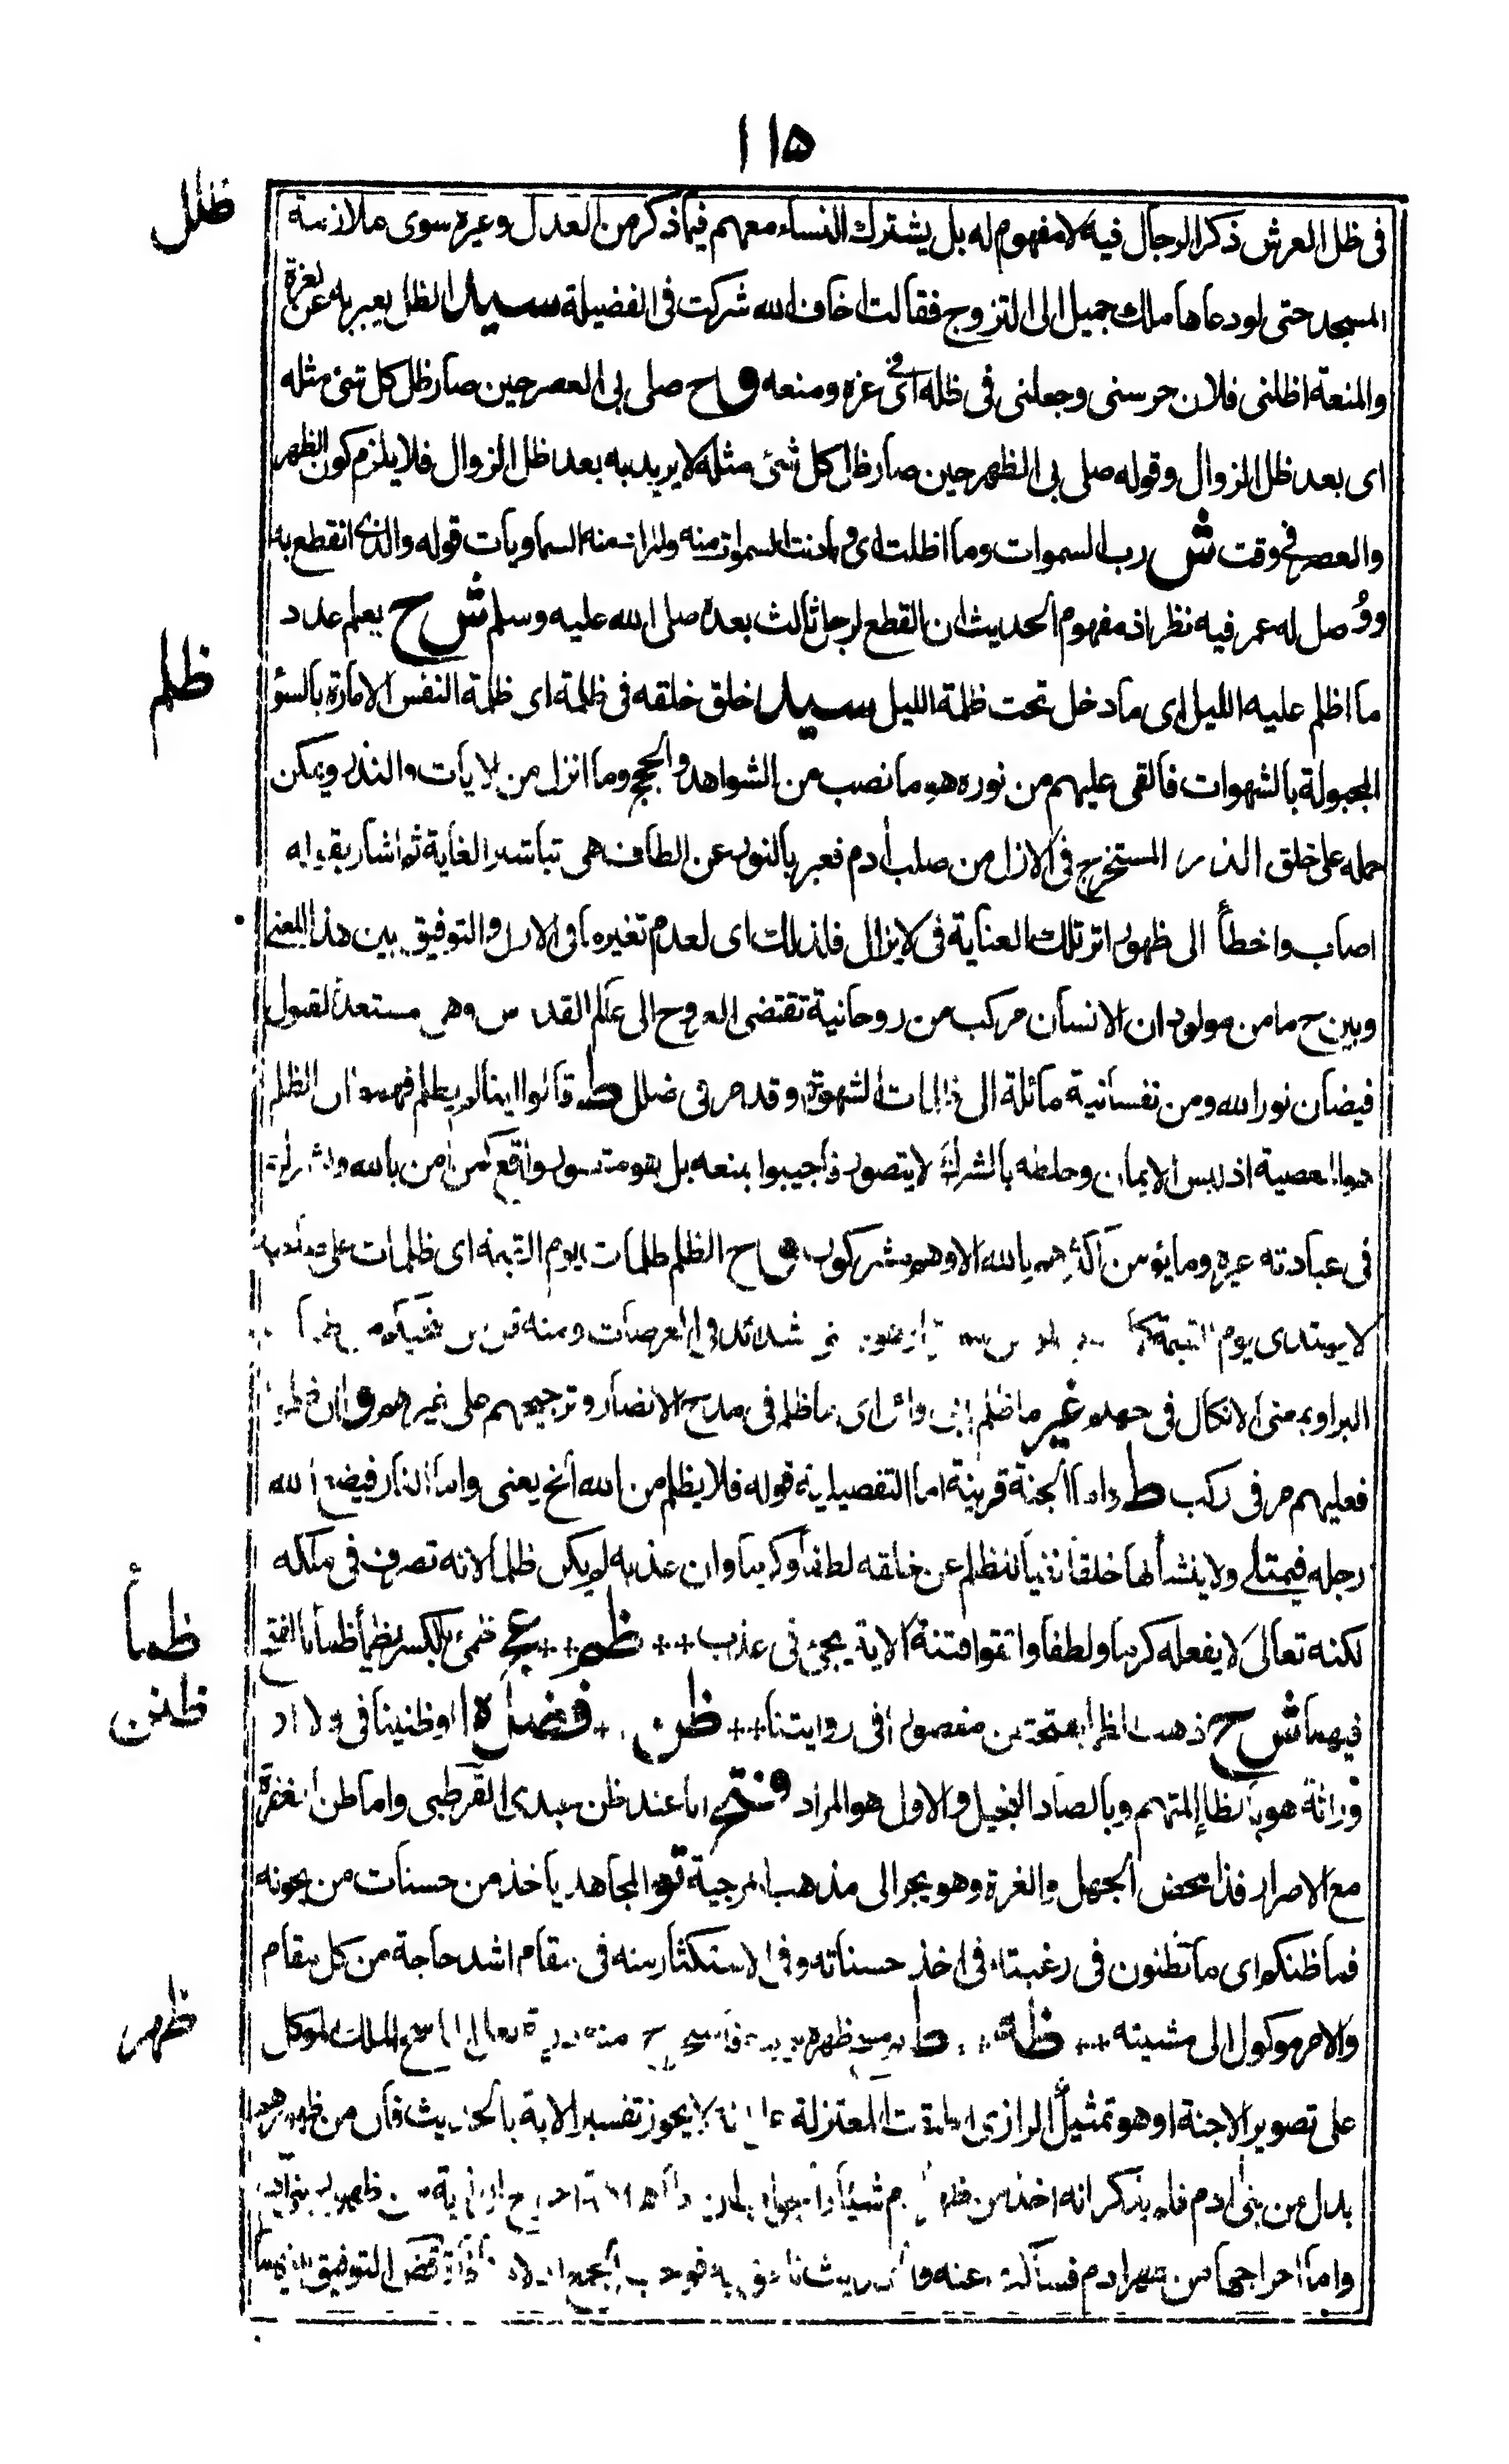 ١١٥
ظلل
فى ظل العرش ذكر الرجال فيه لا مفهوم له بل يشترك النساء معهم فيما ذكر من العدل وغيره سوى ملازمة
المسجد حتى لو دعاها ملك جميل الى التزوج فقالت اخاف الله شركت فى الفضيلة سيد الظل يعبر به عن العزة
والمنعة اظلنى فلان حرسنى وجعلنى فى ظله اى فى عزه ومنعه وح صلى بى العصر حين صار ظل كل شئ مثله
اى بعد ظل الزوال وقوله صلى بى الظهر حين صار ظل كل شئ مثله لا يريد به بعد ظل الزوال فلا يلزم كون الظهر
والعصر فى وقت ش رب السموات وما اظلت اى وما دنت السموات منه السماويات قوله والذى انقطع به
ووُصل له عمر فيه نظر اذ مفهوم الحديث ان القطع لرجل ثالث بعده صلى الله عليه وسلم ش ح يعلم عدد
ظلم
ما اظلم عليه الليل اى ما دخل تحت ظلمة الليل سيد خلق خلقه فى ظلمة اى ظلمة النفس الامارة بالسؤ
المجبولة بالشهوات فالقى عليهم من نوره هو ما نصب من الشواهد والحجج وما انزل من الايات والنذر ويمكن
حمله على خلق الذر المستخرج فى الازل من صلب أدم فعبر بالنور عن الطاف هى تباشير العناية ثم اشار بقوله
اصاب واخطأ الى ظهور اثر تلك العناية فى لايزال فلذلك اى لعدم تغيره فى الازل والتوفيق بين هذا المعنى
وبين ح ما من مولود ان الانسان مركب من روحانية تقتضى العروج الى عالم القدس وهى مستعدة لقبول
فيضان نور الله ومن نفسانية مائلة الى ظلمات الشهوة وقد مر فى ضلل ط قالوا اينا لم يظلم فهموا ان الظلم
هو المعصية اذ لبس الايمان وخلطه بالشرك لا يتصور فاجيبوا بمنعه بل هو متصور واقع كمن أمن بالله واشرك
فى عبادته غيره وما يؤمن اكثرهم بالله الا وهم مشركون وح الظلم ظلمات يوم القيمة اى ظلمات على صاحبه
لا يهتدى يوم القيمة شدائد العرصات ومنه
البر او بمعنى الانكال فى جهنم غير ما ظلم ابى وامى اى ما ظلم فى مدح الانصار وترجيحهم على غيرهم و ان ظلموا
فعليهم مر فى ركب ط واما الجنة قرينة اما التفصيلية قوله فلا يظلم من الله الخ يعنى واما النار فيضع الله
رجله فيمتلى ولا ينشأ لها خلقا نفيا للظلم عن خلقه لطفا وكرما وان عذبه لم يكن ظلما لانه تصرف فى ملكه
ظمأ
لكنه تعالى لا يفعله كرما ولطفا واتقوا فتنة الاية يجئ فى عذب ++ ظمر ++ ع ظمئ بالكسر يظمأ ظمأ بالفتح
ظنن
فيهما ش ح ذهب الظمأ من مقصور فى روايتنا ++ ظن ++ فضله او ظنينا فى ولا او
وراثة هو بالظاء المتهم وبالضاد البخيل والاول هو المراد فتح انا عند ظن عبدى القرطبى واما ظن المغفرة
مع الاصرار فذا محض الجهل والغرة وهو يجر الى مذهب المرجية تو المجاهد ياخذ من حسنات من يخونه
فما ظنكم اى ما تظنون فى رغبته فى اخذ حسناته وفى الاستكثار منه فى مقام اشد حاجة من كل مقام
ظهر
والامر موكول الى مشيته ++ ظه ++ ط مسح ظهره الماسح الملك الموكل
على تصوير الاجنة او هو تمثيل الرازى اطبقت المعتزلة على انه لا يجوز تفسير الاية بالحديث فان من ظهورهم
بدل من بنى أدم فلم يذكر انه اخذ من ظهر أدم شيئا
واما اخراجها من ظهر ادم فساكت عنه